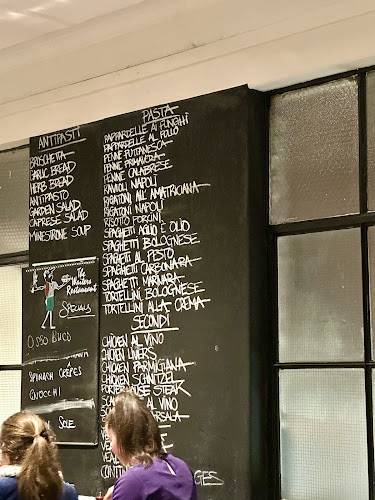 ANTIPASTI
BRUSCHETTA
GARLIC BREAD
HERB BREAD
ANTIPASTO
GARDEN SALAD
CAPRESE SALAD
MINESTRONE SOUP
The
Waiters
Restaurant
SPECIALS
OSSO BUCO
SPINASH CREPES
GNOCCHI
SOLE
PASTA
PAPPARDELLE AI FUNGHI
PAPPARDELLE AL POLLO
PENNE PUTTANESCA
PENNE PRIMAVERA
PENNE CALABRESE
RAVIOLI NAPOLI
RIGATONI ALL' AMATRICIANA
RIGATONI NAPOLI
RISOTTO PORCINI
SPAGHETTI AGLIO E OLIO
SPAGHETTI BOLOGNESE
SPAGHETTI AL PESTO
SPAGHETTI CARBONARA
SPAGHETTI MARINARA
TORTELLINI BOLOGNESE
TORTELLINI ALLA CREMA
SECONDI
CHICKEN AL VINO
CHICKEN LIVERS
CHICKEN PARMIGIANA
CHICKEN SCHNITZEL
PORTERHOUSE STEAK
AL VINO